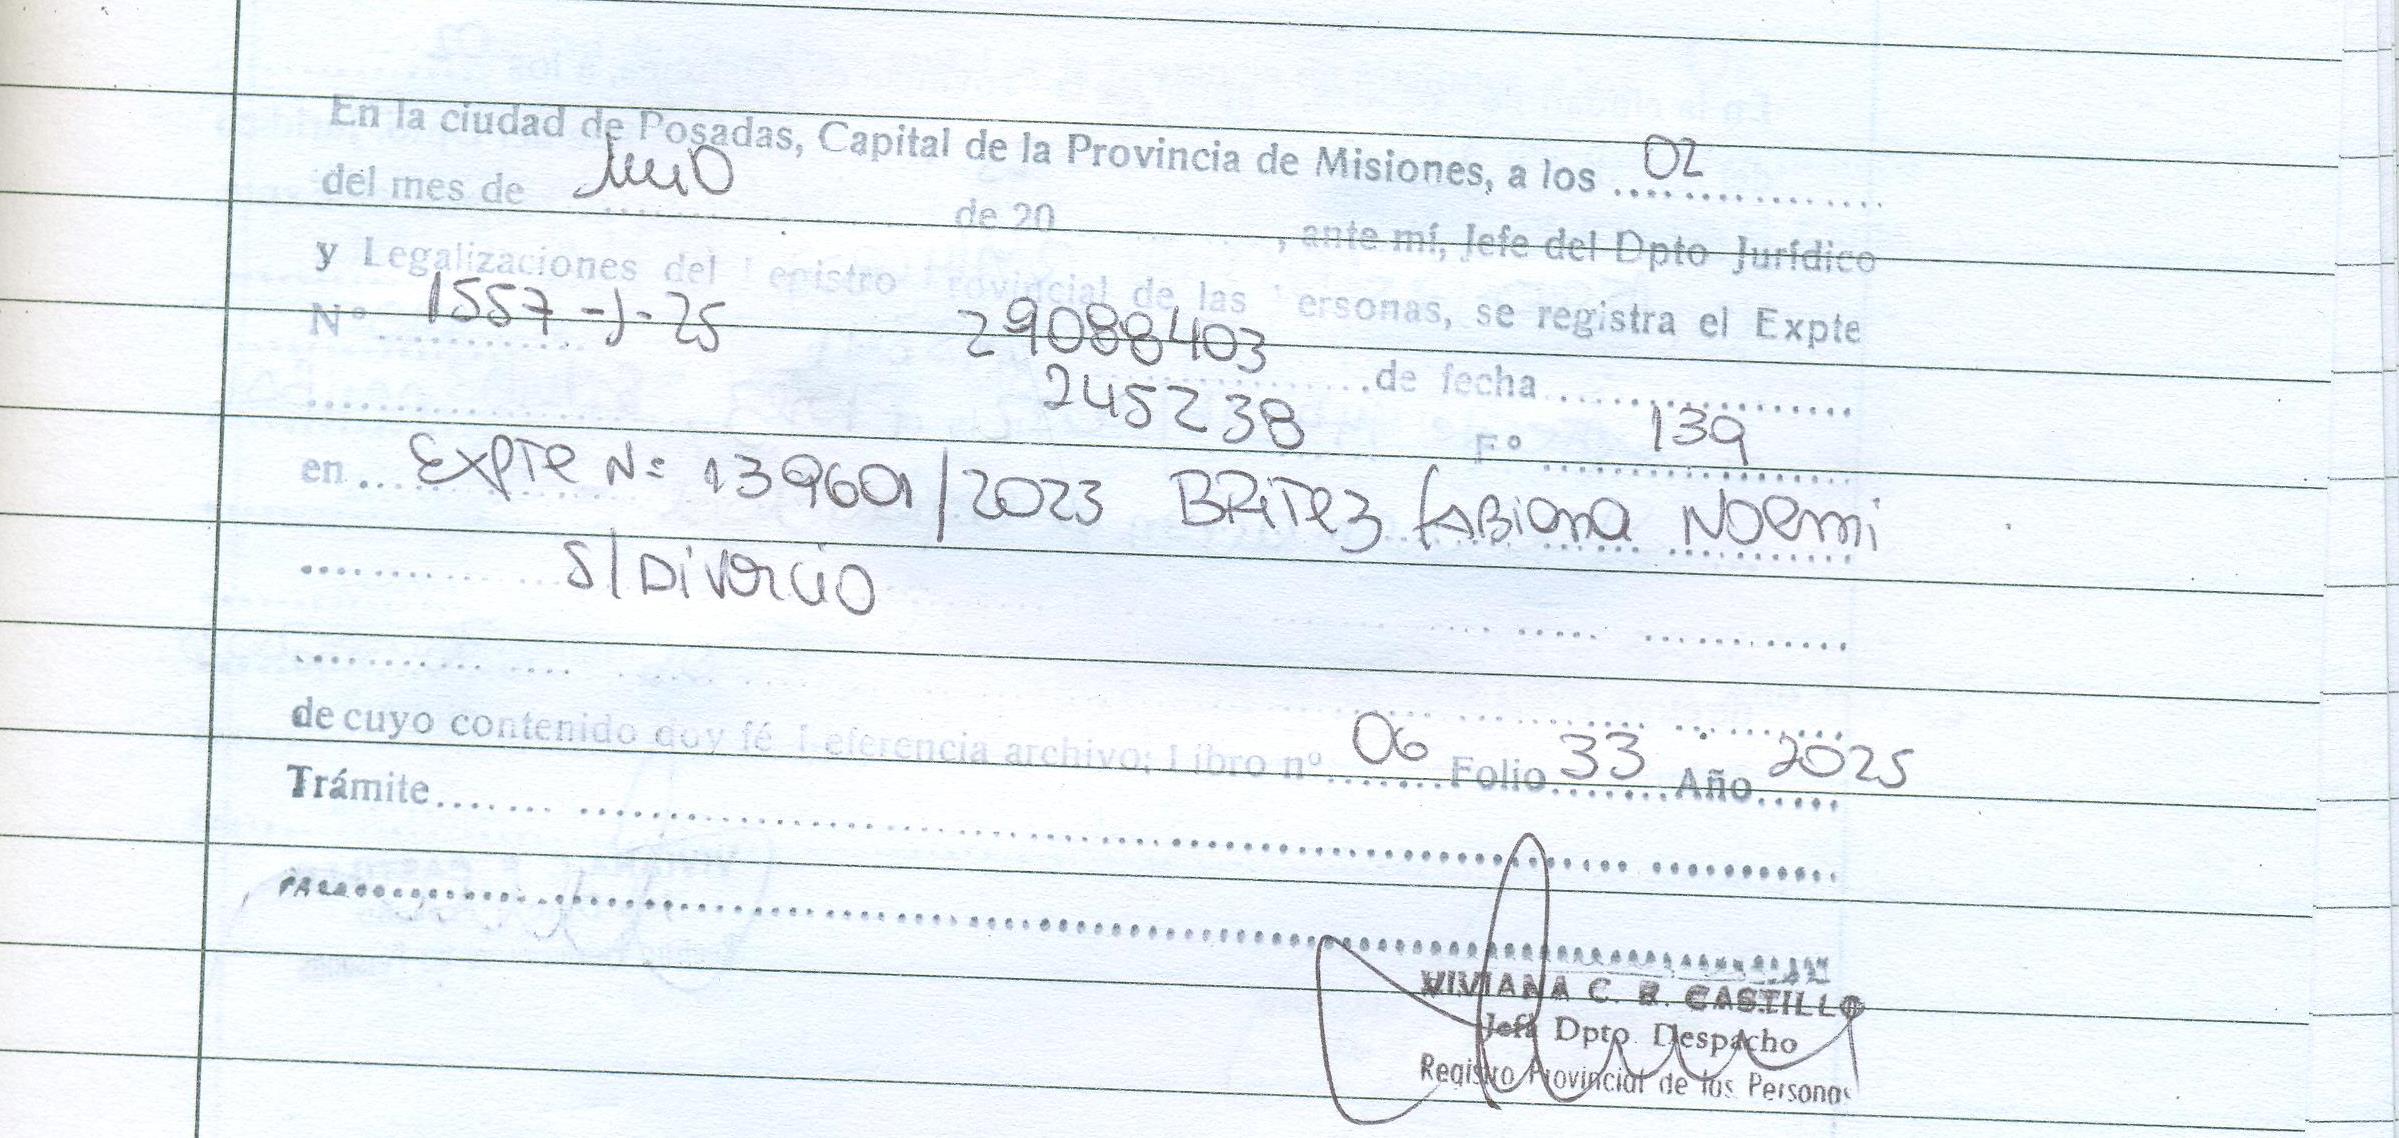 En la ciudad de Posadas, Capital de la Provincia de Misiones, a los 02
del mes de de 20 , ante mí, Jefe del Dpto Jurídico
y Legalizaciones del Registro Provincial de las Personas, se registra el Expte
Nº 1557-J-25 29088403 de fecha
245238 Fº 139
en Expte Nº 139601/2023 BRITEZ FABIANA NOEMI
S/DIVORCIO
de cuyo contenido doy fé Referencia archivo; Libro nº 06 Folio 33 Año 2025
Trámite
VIVIANA C. R. CASTILLO
Jefa Dpto. Despacho
Registro Provincial de las Personas